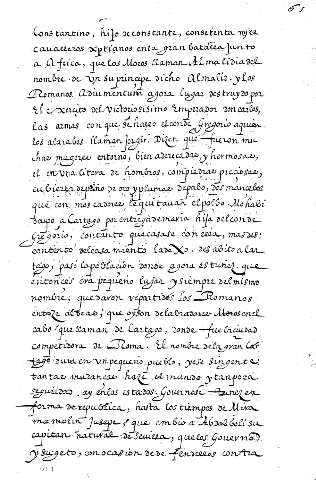 65
Constantino, hijo de constante, con setenta mil
cavalleros xptianos en la gran batalla junto
a Africa, que los Moros llaman Almahdia del
nombre de un su principe dicho Almahdi. y los
Romanos Adrumentum agora lugar destruydo por
El Exercito del victoriosissimo Emperador don carlos,
las armas con que se hazer el conde Gregorio aquien
los alarabes llaman Jorgir. Dizen que fueron mu
chas mugeres entorno, bien adereçadas, y hermosas,
el en una litera de hombros, con piedras preciosas,
cubierta de paño de oro y plumas de pabo, dos mancebos
que con moscadores le quitavan el polbo.
bajo a Cartago por entrega de maria hija del conde
Gregorio, contanto que casase con ella, mas des
contento del casamiento la dexo. des abito a lar
tago, paso la poblaçion donde agora es tunez, que
entonces era pequeño lugar y siempre del mismo
nombre, quedaron repartidos los Romanos
en toze aldeas, que oy son de labradores Moros en el
cabo que llaman de Cartago, donde fue la ciudad
competidora de Roma. El nombre de la gran Car
tago dura en un pequeño pueblo, y ese sin gente
tantas mudanças haze el mundo y tan poca
seguridad, ay en los estados. Governose Tunez en
forma de republica, hasta los tiempos de Mira
mamolin Jusepe, que embio a
su capitan natural de sevilla, que los Governo
y sujeto, con ocasion de defenderlos contra